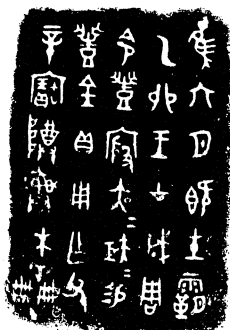 隹六月既生霸
乙卯王才成周
令豐殷大＝矩＝易
豐金貝用乍父
辛寶尊彝木羊冊